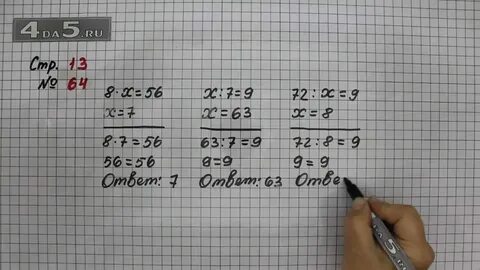 4DA5.RU
Стр. 13
№ 64
8·x=56
x=7
8·7=56
56=56
Ответ: 7
x:7=9
x=63
63:7=9
9=9
Ответ: 63
72:x=9
x=8
72:8=9
9=9
Отве